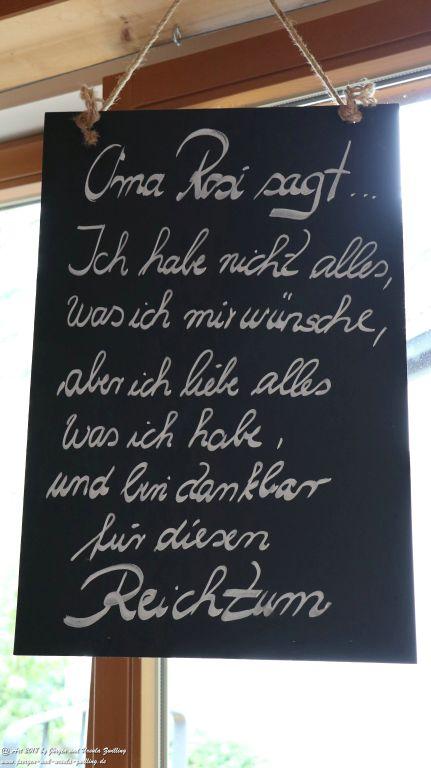 Oma Rosi sagt...
Ich habe nicht alles,
was ich mir wünsche,
aber ich liebe alles
was ich habe,
und bin dankbar
für diesen
Reichtum
(C) Art 2017 by Jürgen und Ursula Zwilling
www.juergen-und-ursula-zwilling.de